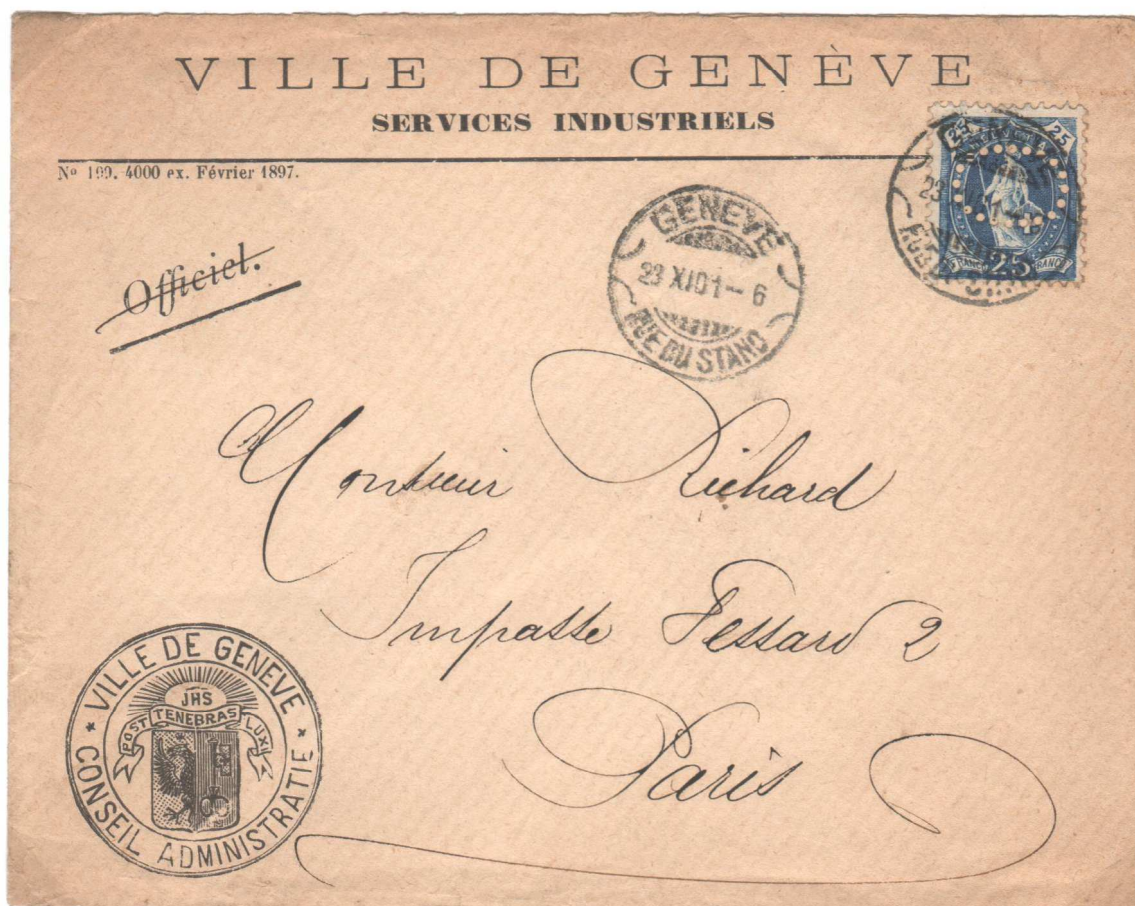 VILLE DE GENÈVE
SERVICES INDUSTRIELS
Nº 199. 4000 ex. Février 1897.
25 25
25
FRANCO
23
GENEVE
23 XI 01 – 6
RUE DU STAND
Officiel.
Monsieur Richard
Impasse Fessard 2
Paris
VILLE DE GENEVE
JHS
POST TENEBRAS LUX
CONSEIL ADMINISTRATIF